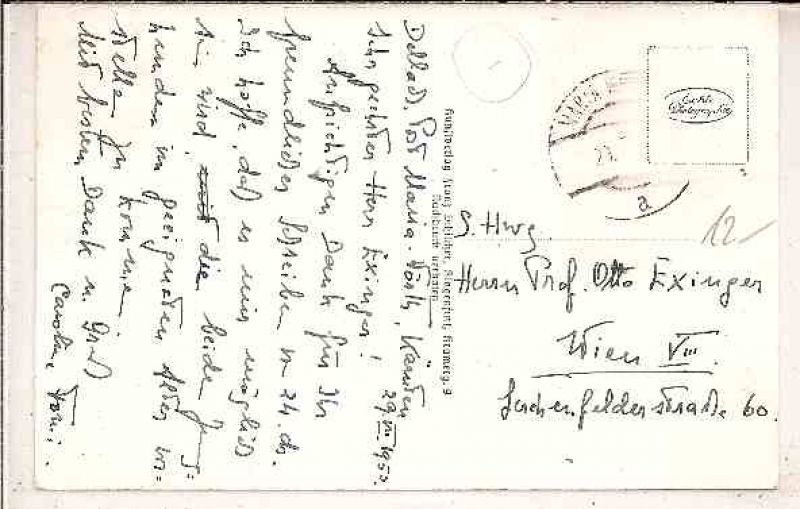 Dellach, Post Maria-Wörth, Kärnten
29 VII 1953.
Sehr geehrter Herr Exinger!
Aufrichtigen Dank für Ihr
freundliches Schreiben v. 24. ds.
Ich hoffe, daß es mir möglich
sein wird, die beide Jung=
im geeigneten Alter
Stelle zu können.
Mit bestem Dank u. Gruß
Caroline
Kunstverlag Franz Schilcher, Klagenfurt, Kramerg. 9
Nachdruck verboten
MARIA
a
Echte
Photographie
12-
S. Hwg.
Herrn Prof. Otto Exinger
Wien VIII.
Lerchenfelderstraße 60.